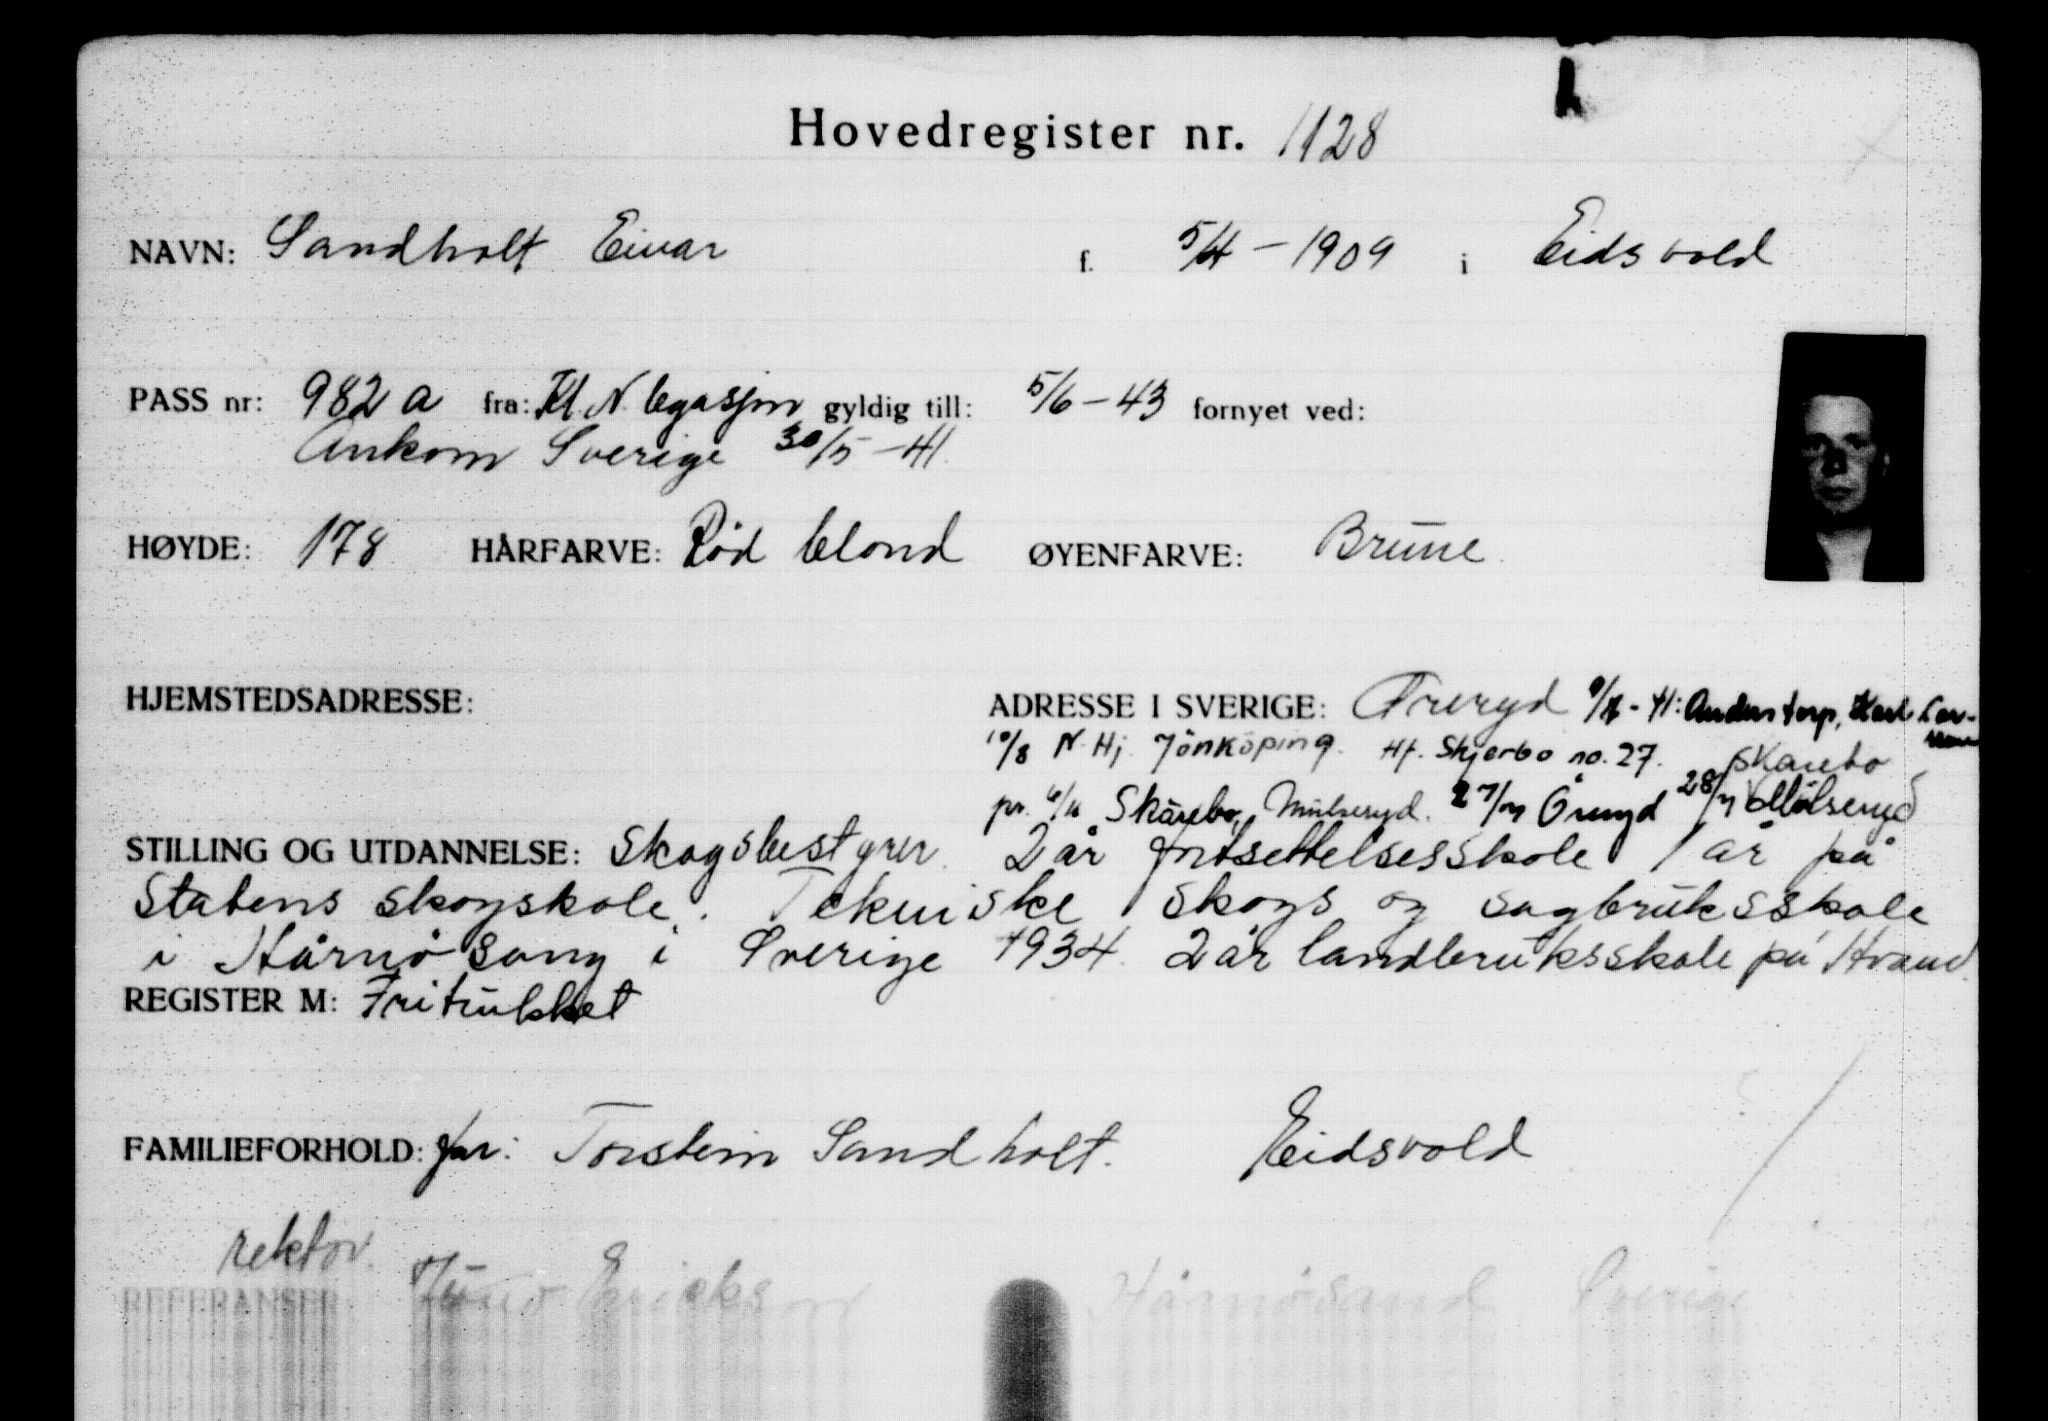 Hovedregister nr. 1128
NAVN: Sandholt Eivar f. 5/4 - 1909 i Eidsvold
PASS nr: 982 a fra: Kl. N. legasjon gyldig till: 5/6 - 43 fornyet ved:
Ankom Sverige 30/5 - 41.
HØYDE: 178 HÅRFARVE: Rød blond ØYENFARVE: Brune
HJEMSTEDSADRESSE: ADRESSE I SVERIGE: Anderstorp, Karl Lar-
10/8 N. Hj. Jönköping. Hf. Skjerbo no. 27. Skarebo
pr. Skärebo, Mulseryd. 27/7 28/7 Mölseryd
STILLING OG UTDANNELSE: Skogsbestyrer. 2 år fortsettelsesskole 1 år på
Statens skogskole. Tekniske skogs og sagbruksskole
i Hårnøsang i Sverige 1934. 2 år landbruksskole på Hvam.
REGISTER M: Fritrukket
FAMILIEFORHOLD: far: Torstein Sandholt. Eidsvold
rektor.
REFERANSER: Erickson Hårnøsand Sverige